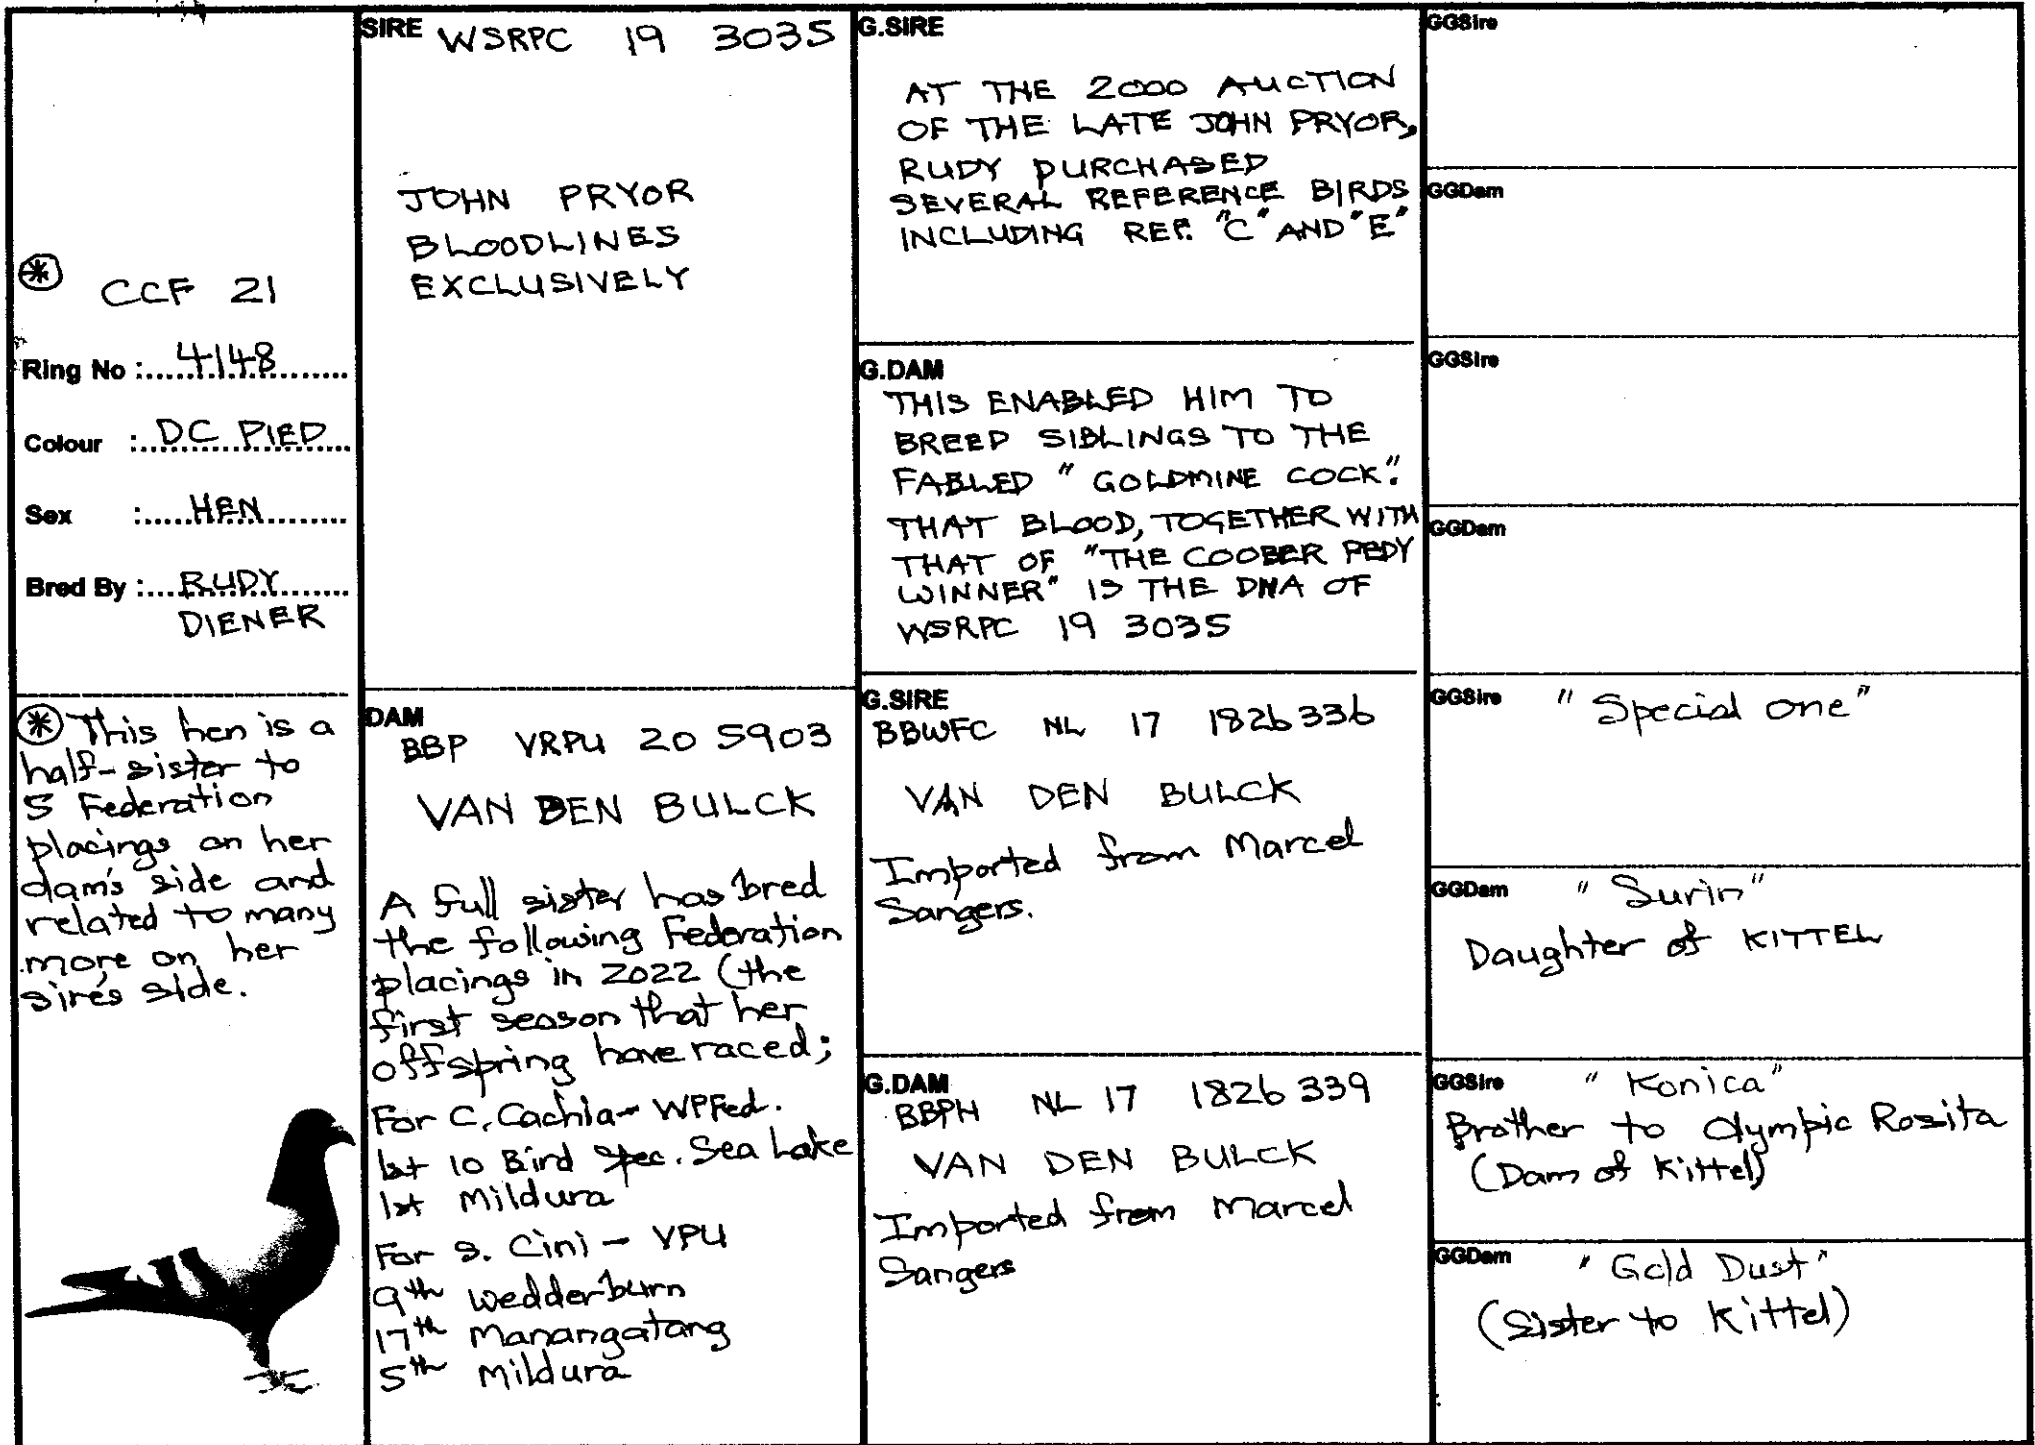 CCF 21
Ring No : 4148
Colour : DC PIED
Sex : HEN
Bred By : RUDY
DIENER
This hen is a
half-sister to
5 Federation
placings on her
dam's side and
related to many
more on her
sire's side.
SIRE WSRPC 19 3035
JOHN PRYOR
BLOODLINES
EXCLUSIVELY
DAM
BBP VRPU 20 5903
VAN DEN BULCK
A full sister has bred
the following Federation
placings in 2022 (the
first season that her
offspring have raced;
For C. Cachia - WPFed.
1st 10 Bird Spec. Sea Lake
1st Mildura
For S. Cini - VPU
9th Wedderburn
17th Manangatang
5th Mildura
G.SIRE
AT THE 2000 AUCTION
OF THE LATE JOHN PRYOR,
RUDY PURCHASED
SEVERAL REFERENCE BIRDS
INCLUDING REF. "C" AND "E"
G.DAM
THIS ENABLED HIM TO
BREED SIBLINGS TO THE
FABLED "GOLDMINE COCK".
THAT BLOOD, TOGETHER WITH
THAT OF "THE COOBER PEDY
WINNER" IS THE DNA OF
WSRPC 19 3035
G.SIRE
BBWFC NL 17 1826336
VAN DEN BULCK
Imported from Marcel
Sangers.
G.DAM
BBPH NL 17 1826339
VAN DEN BULCK
Imported from Marcel
Sangers
GGSire
GGDam
GGSire
GGDam
GGSire "Special one"
GGDam "Surin"
Daughter of KITTEL
GGSire "Konica"
Brother to Olympic Rosita
(Dam of Kittel)
GGDam "Gold Dust"
(Sister to Kittel)